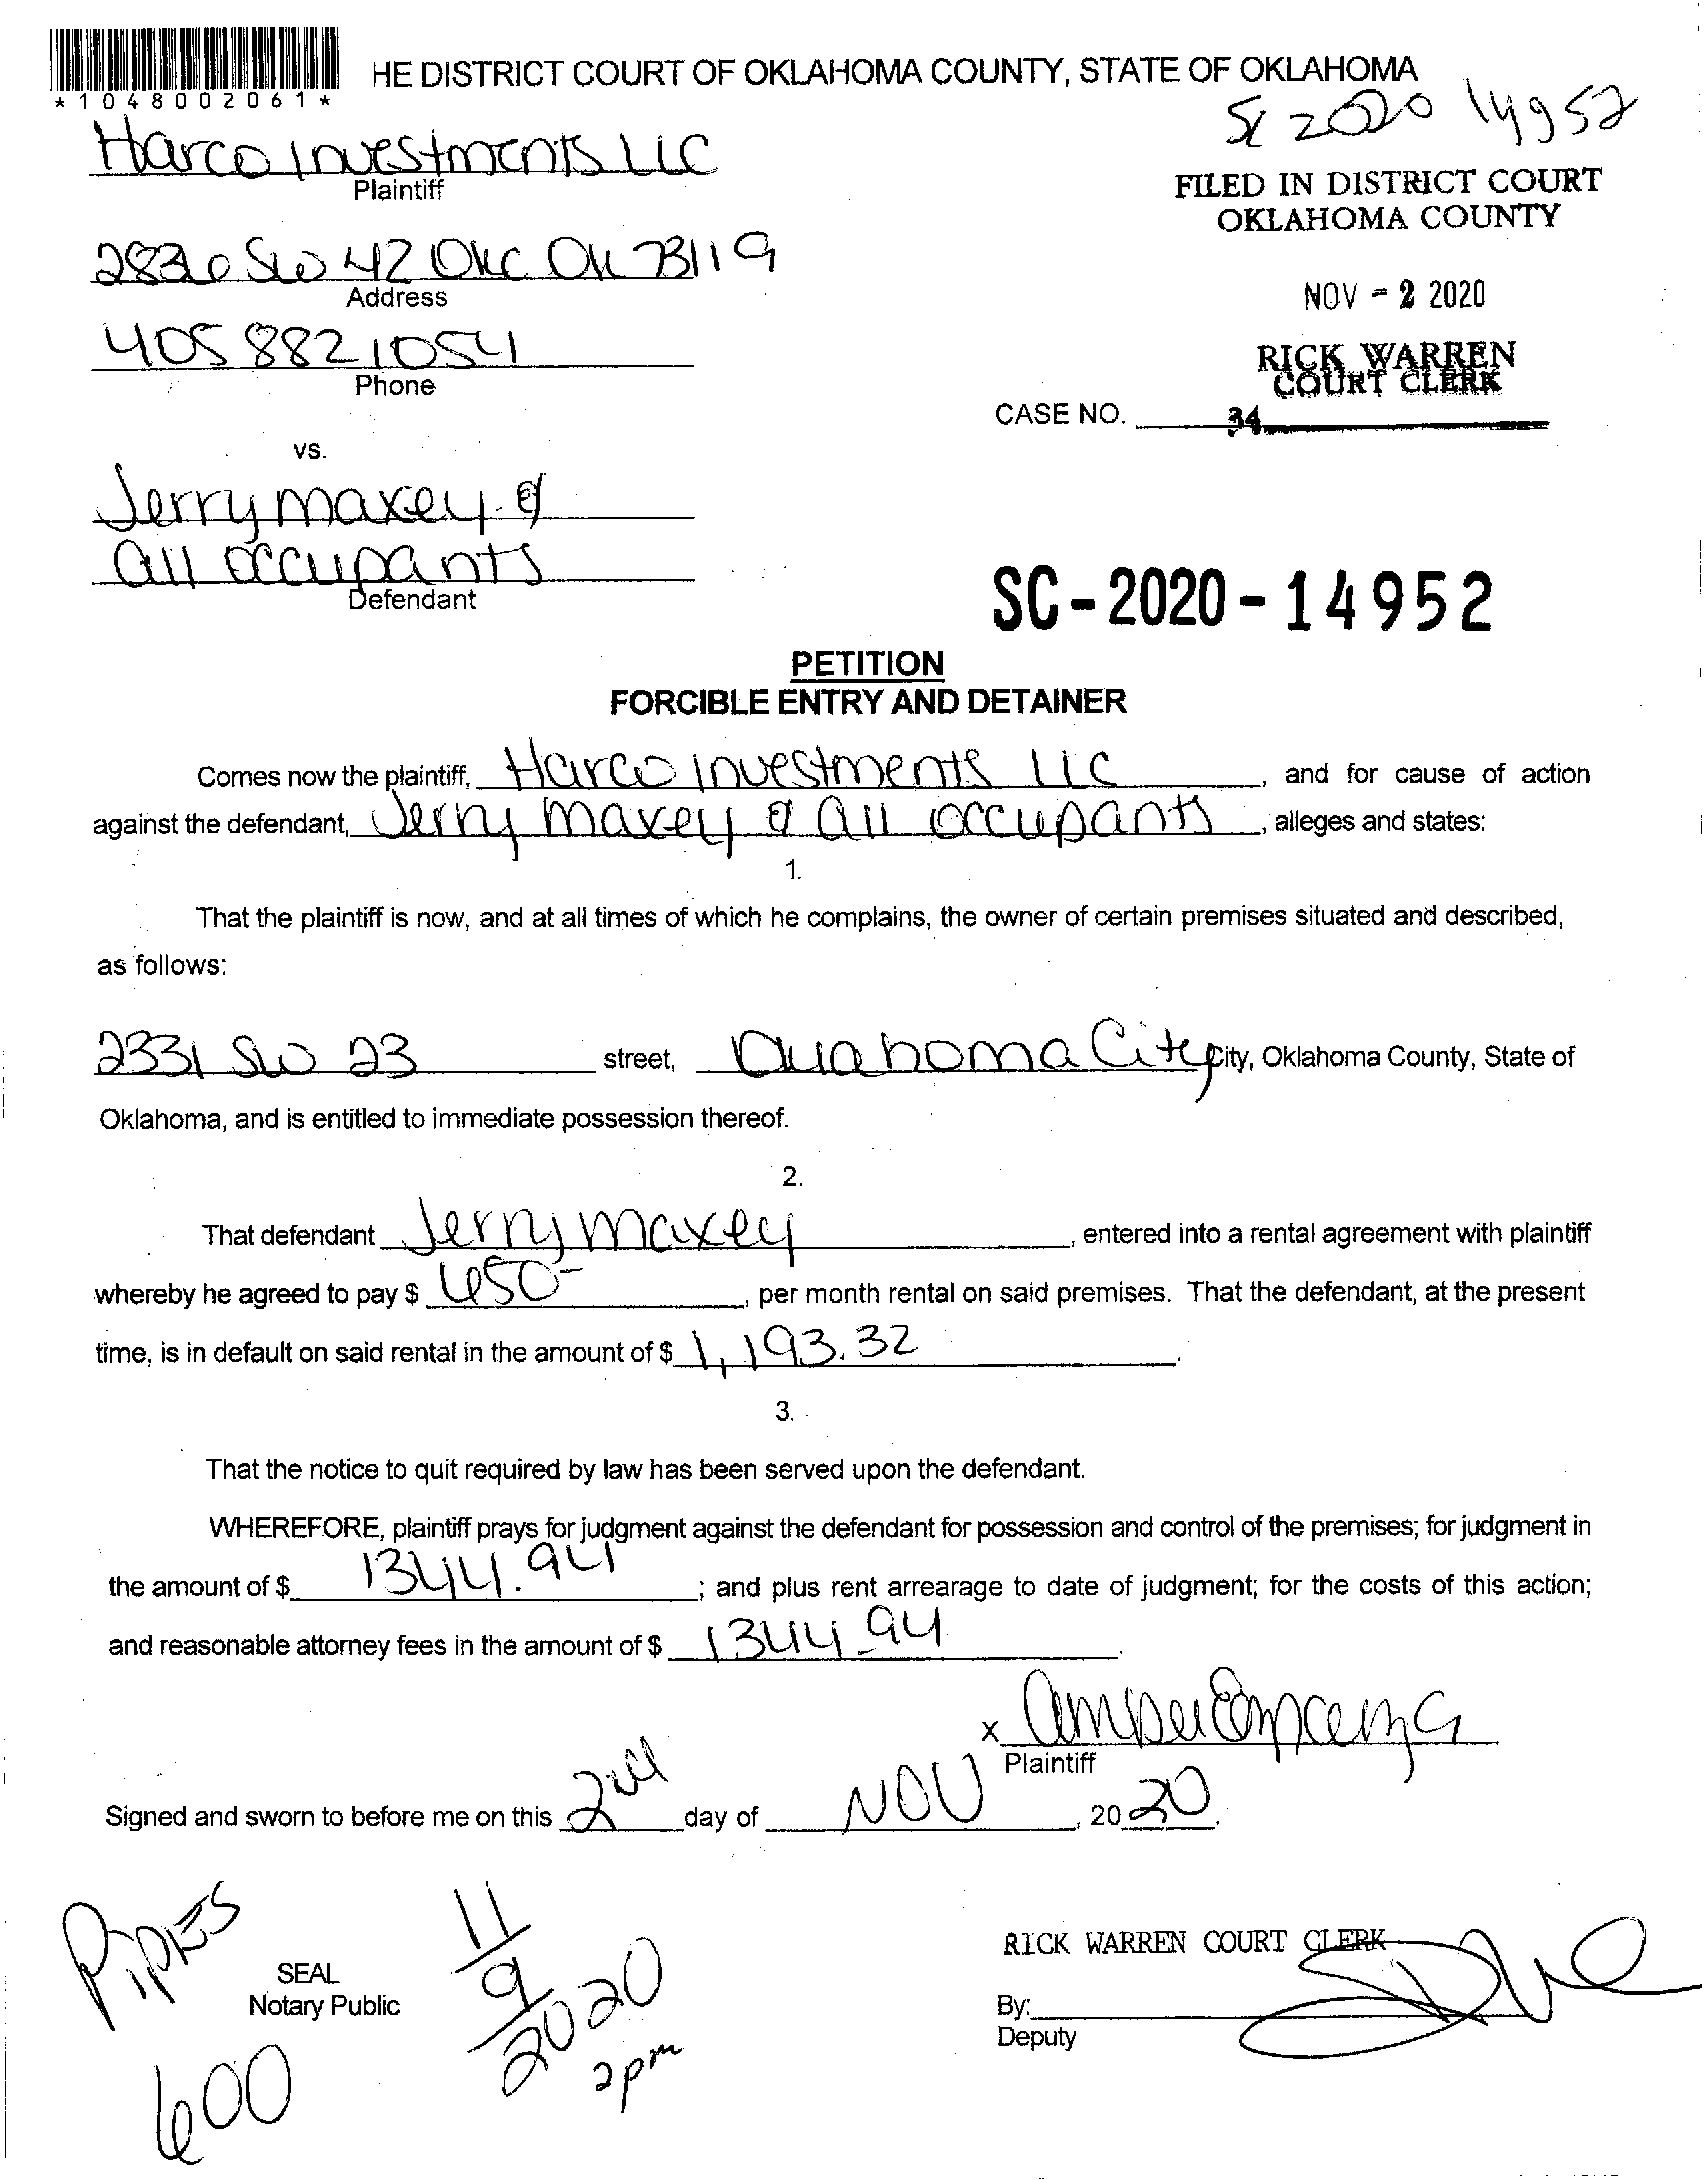 HE DISTRICT COURT OF OKLAHOMA COUNTY, STATE OF OKLAHOMA
*1048002061*
SC 2020 14952
Harco Investments LLC
Plaintiff
FILED IN DISTRICT COURT
OKLAHOMA COUNTY
SW 42 OKC OK 73119
Address
NOV - 2 2020
405 882 1054
Phone
RICK WARREN
COURT CLERK
CASE NO.
34
vs.
Jerry maxey &
all occupants
Defendant
SC-2020-14952
PETITION
FORCIBLE ENTRY AND DETAINER
Comes now the plaintiff, Harco investments LLC, and for cause of action
against the defendant, Jerry maxey & all occupants, alleges and states:
1.
That the plaintiff is now, and at all times of which he complains, the owner of certain premises situated and described,
as follows:
2331 SW 23 street, Oklahoma City City, Oklahoma County, State of
Oklahoma, and is entitled to immediate possession thereof.
2.
That defendant Jerry maxey, entered into a rental agreement with plaintiff
whereby he agreed to pay $ 650-, per month rental on said premises. That the defendant, at the present
time, is in default on said rental in the amount of $ 1,193.32.
3.
That the notice to quit required by law has been served upon the defendant.
WHEREFORE, plaintiff prays for judgment against the defendant for possession and control of the premises; for judgment in
the amount of $ 1344.94; and plus rent arrearage to date of judgment; for the costs of this action;
and reasonable attorney fees in the amount of $ 1344.94.
x
Plaintiff
Signed and sworn to before me on this 2nd day of NOV, 2020.
PIPKES
11/9/2020
2pm
SEAL
Notary Public
600
RICK WARREN COURT CLERK
By:
Deputy